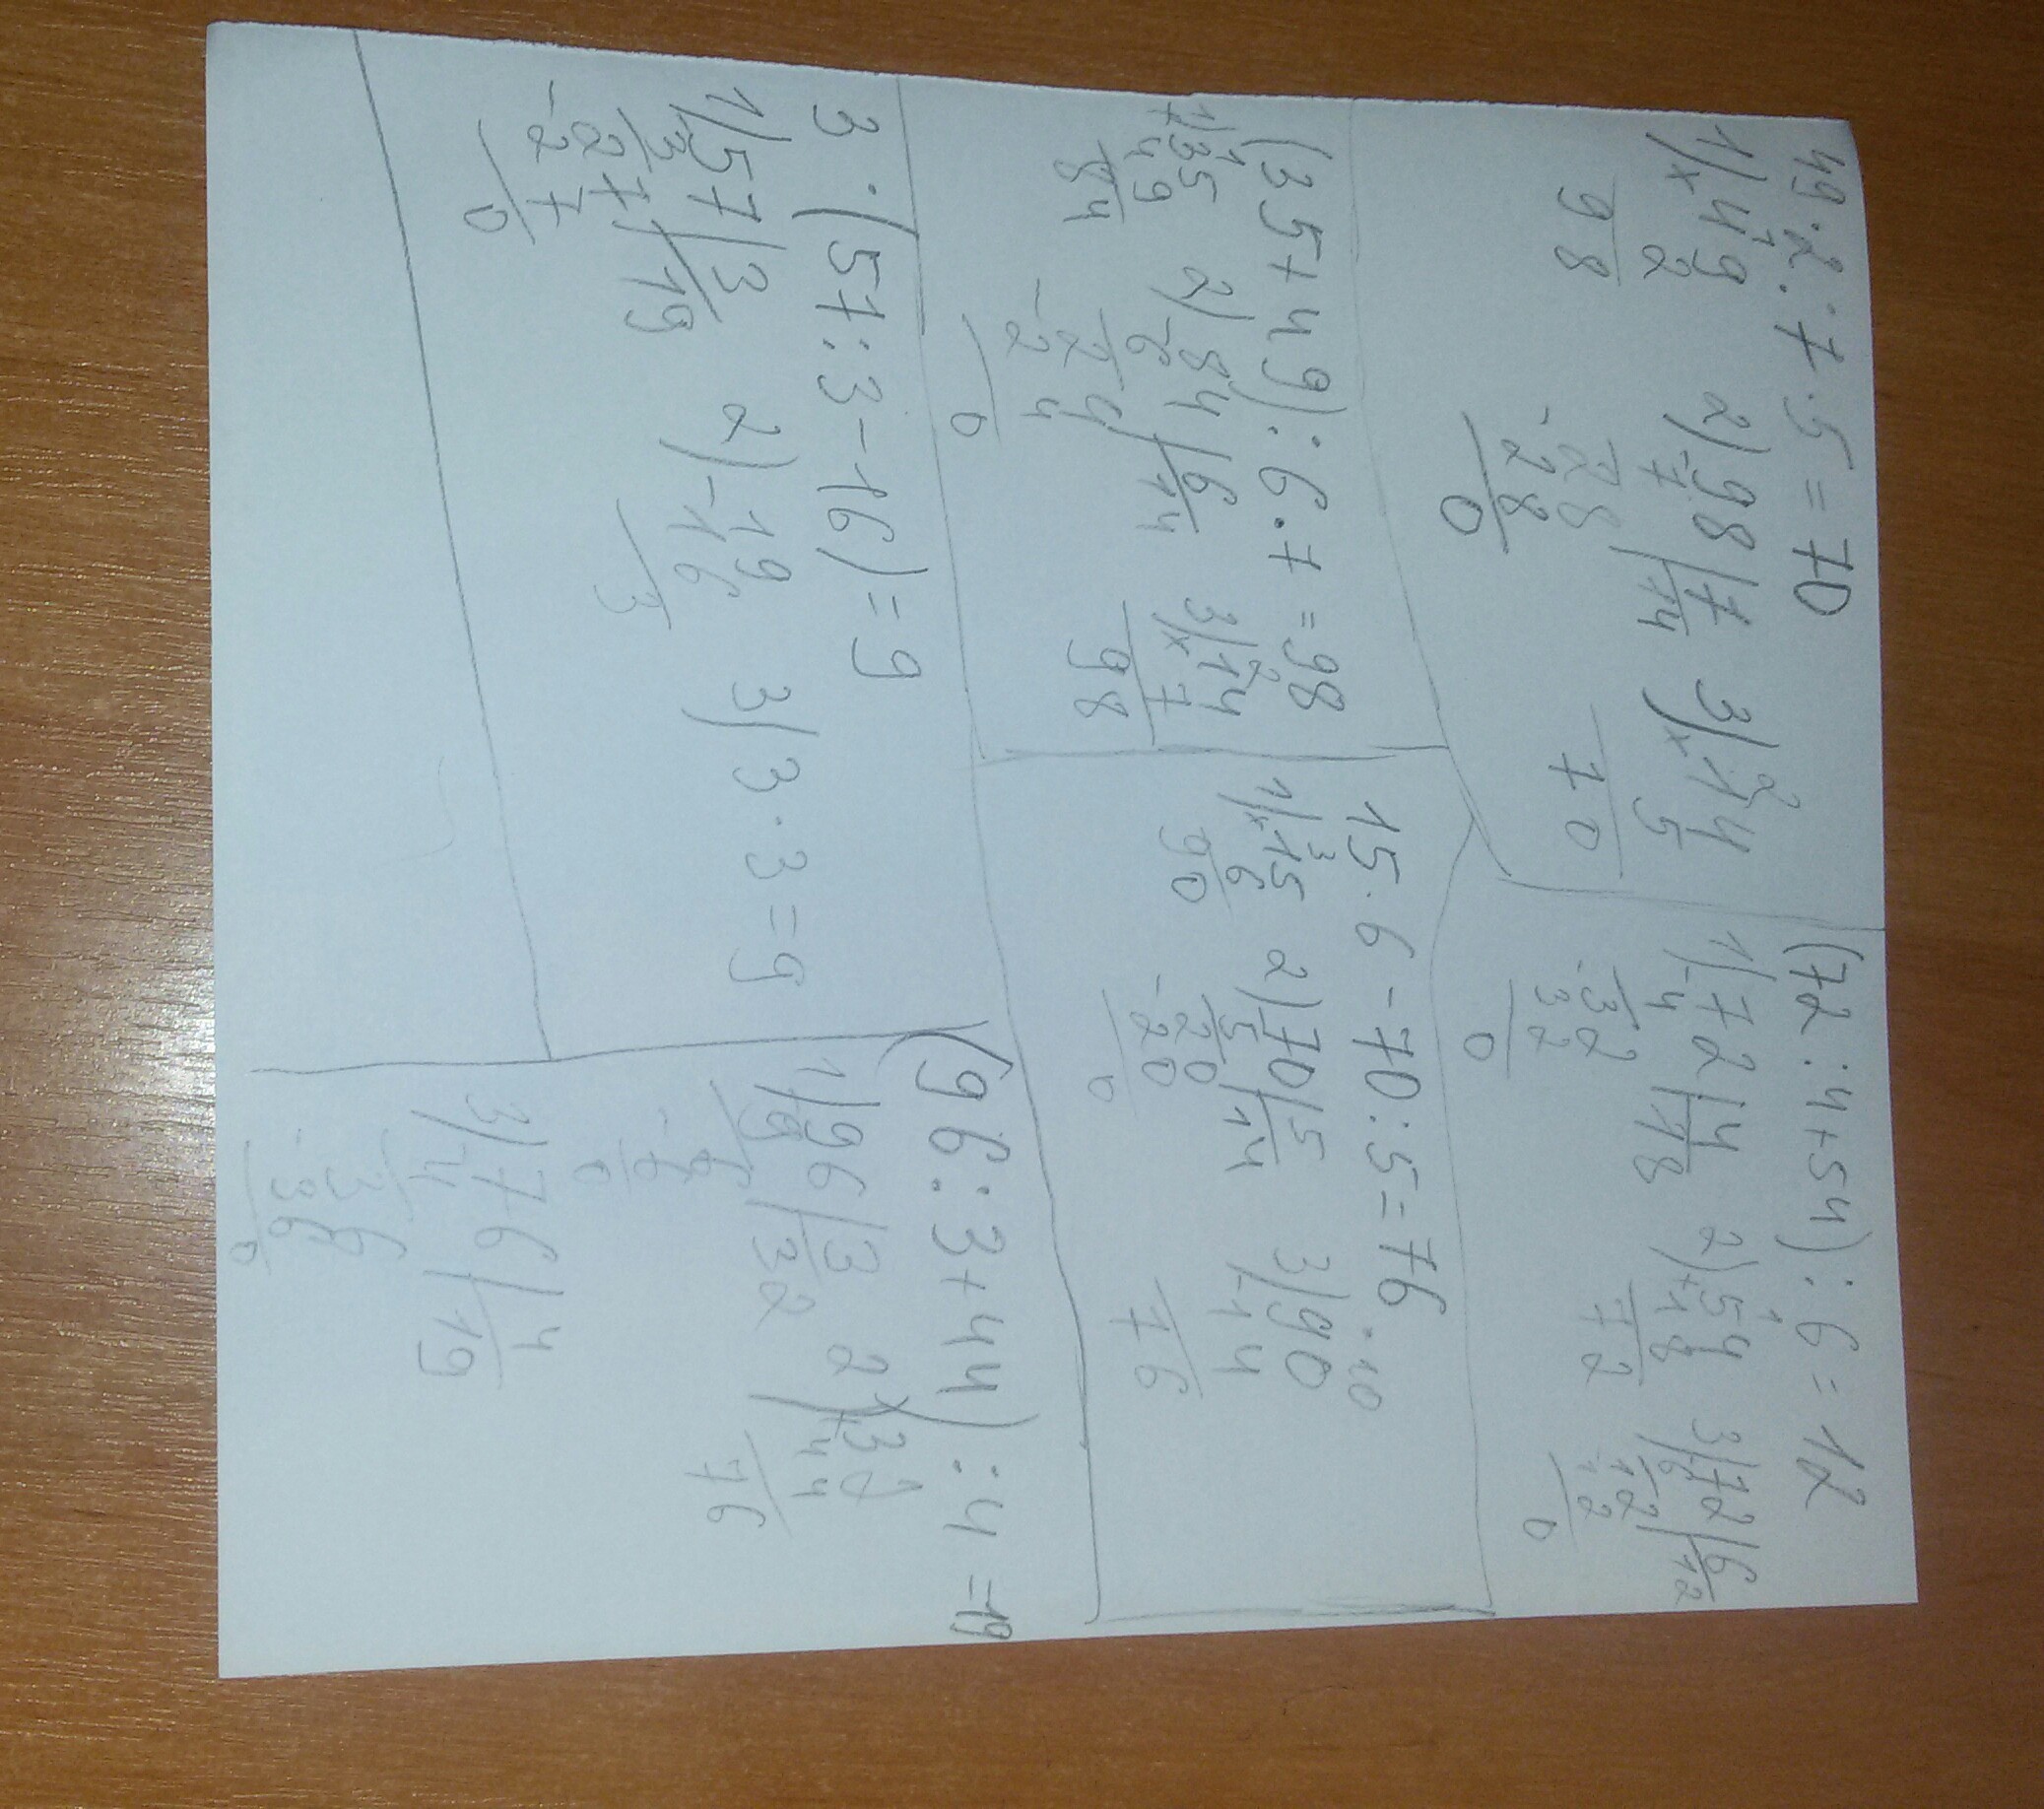 49·2:7·5=70
1) 49 2) 98|7 3) 14
× 2 -7 |14 × 5
98 28 70
-28
0
(72:4+54):6=12
1) 72|4 2) 54 3) 72|6
-4 |18 +18 -6 |12
32 72 12
-32 -12
0 0
(35+49):6·7=98
1) 35 2) 84|6 3) 14
+49 -6 |14 × 7
84 24 98
-24
0
15·6-70:5=76
·10
1) 15 2) 70|5 3) 90
× 6 5 |14 -14
90 20 76
-20
0
3·(57:3-16)=9
1) 57|3 2) 19 3) 3·3=9
3 |19 -16
27 3
-27
0
(96:3+44):4=19
1) 96|3 2) 32
9 |32 +44
6 76
-6
0
3) 76|4
-4 |19
36
-36
0